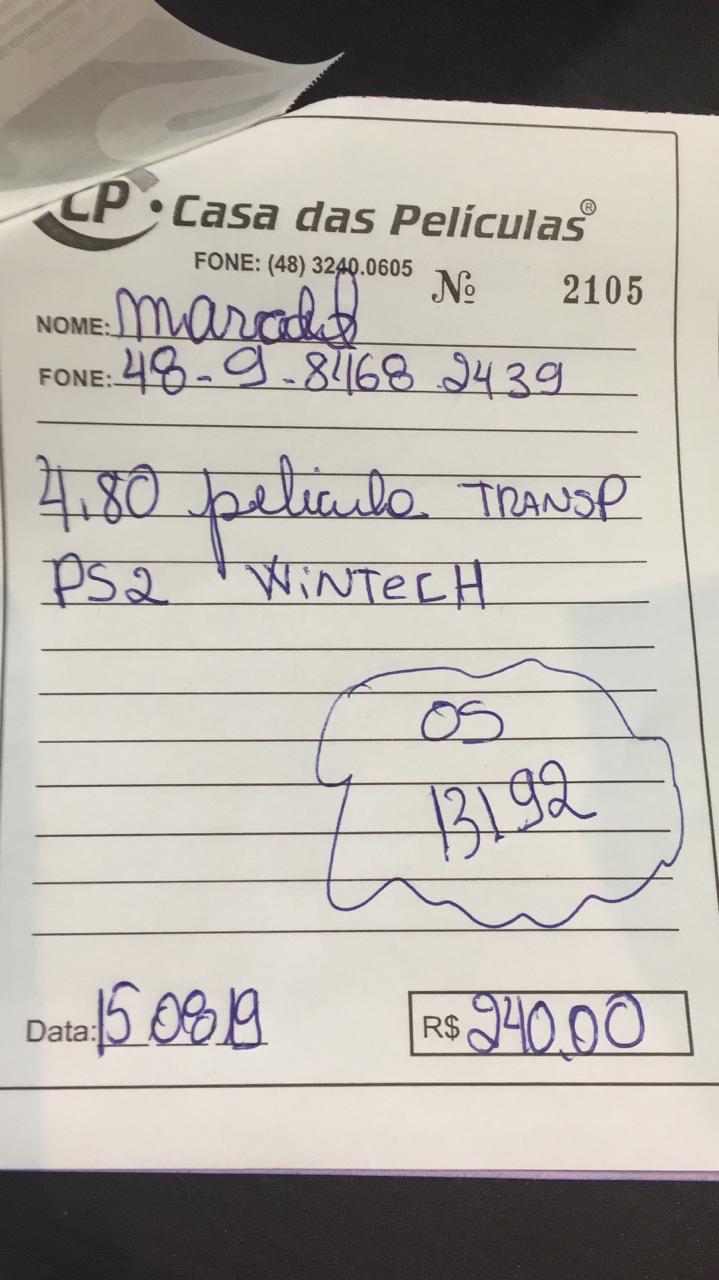 CP • Casa das Películas®
FONE: (48) 3240.0605
Nº 2105
NOME:
FONE: 48-9-8468 2439
4,80 pelicula TRANSP
PS2 WiNTeCH
OS
13192
Data: 15 08 19
R$ 240,00